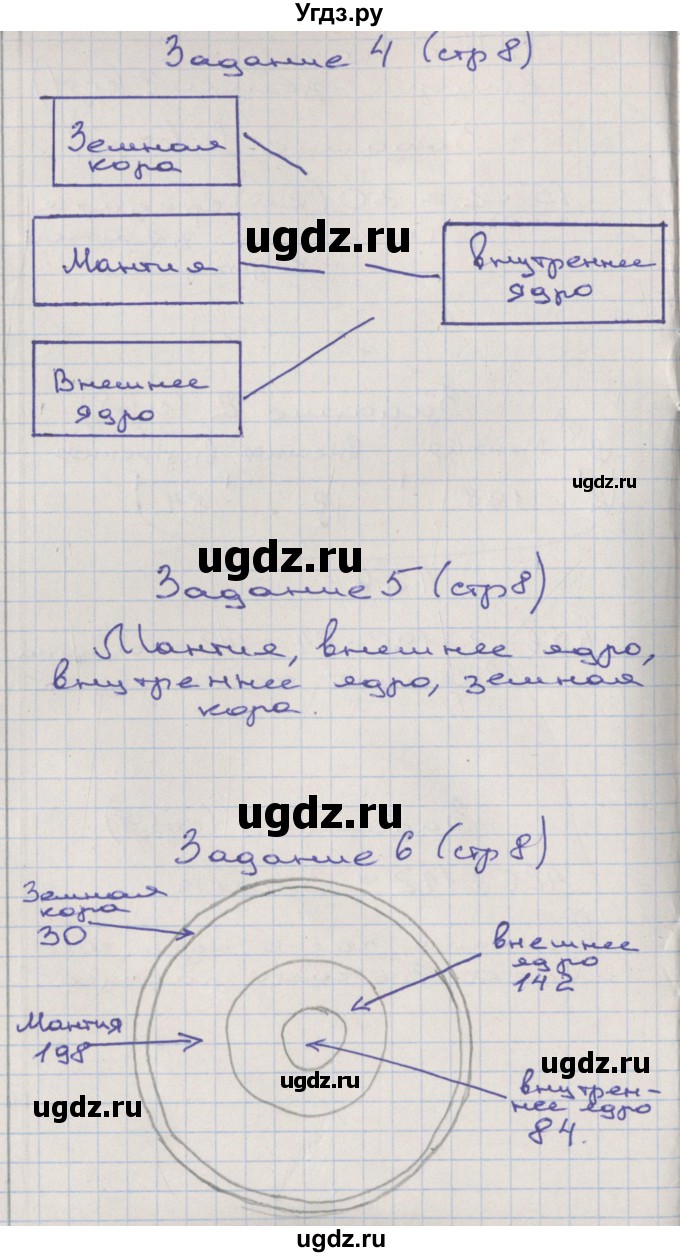 Угдз.ру
Задание 4 (стр 8)
Земная
кора
ugdz.ru
Мантия
внутреннее
ядро
Внешнее
ядро
ugdz.ru
ugdz.ru
Задание 5 (стр 8)
Мантия, внешнее ядро,
внутреннее ядро, земная
кора.
ugdz.ru
Задание 6 (стр 8)
Земная
кора
30
внешнее
ядро
142
Мантия
198
ugdz.ru
ugdz.ru
ugdz.ru
внутрен-
нее ядро
84.
ugdz.ru